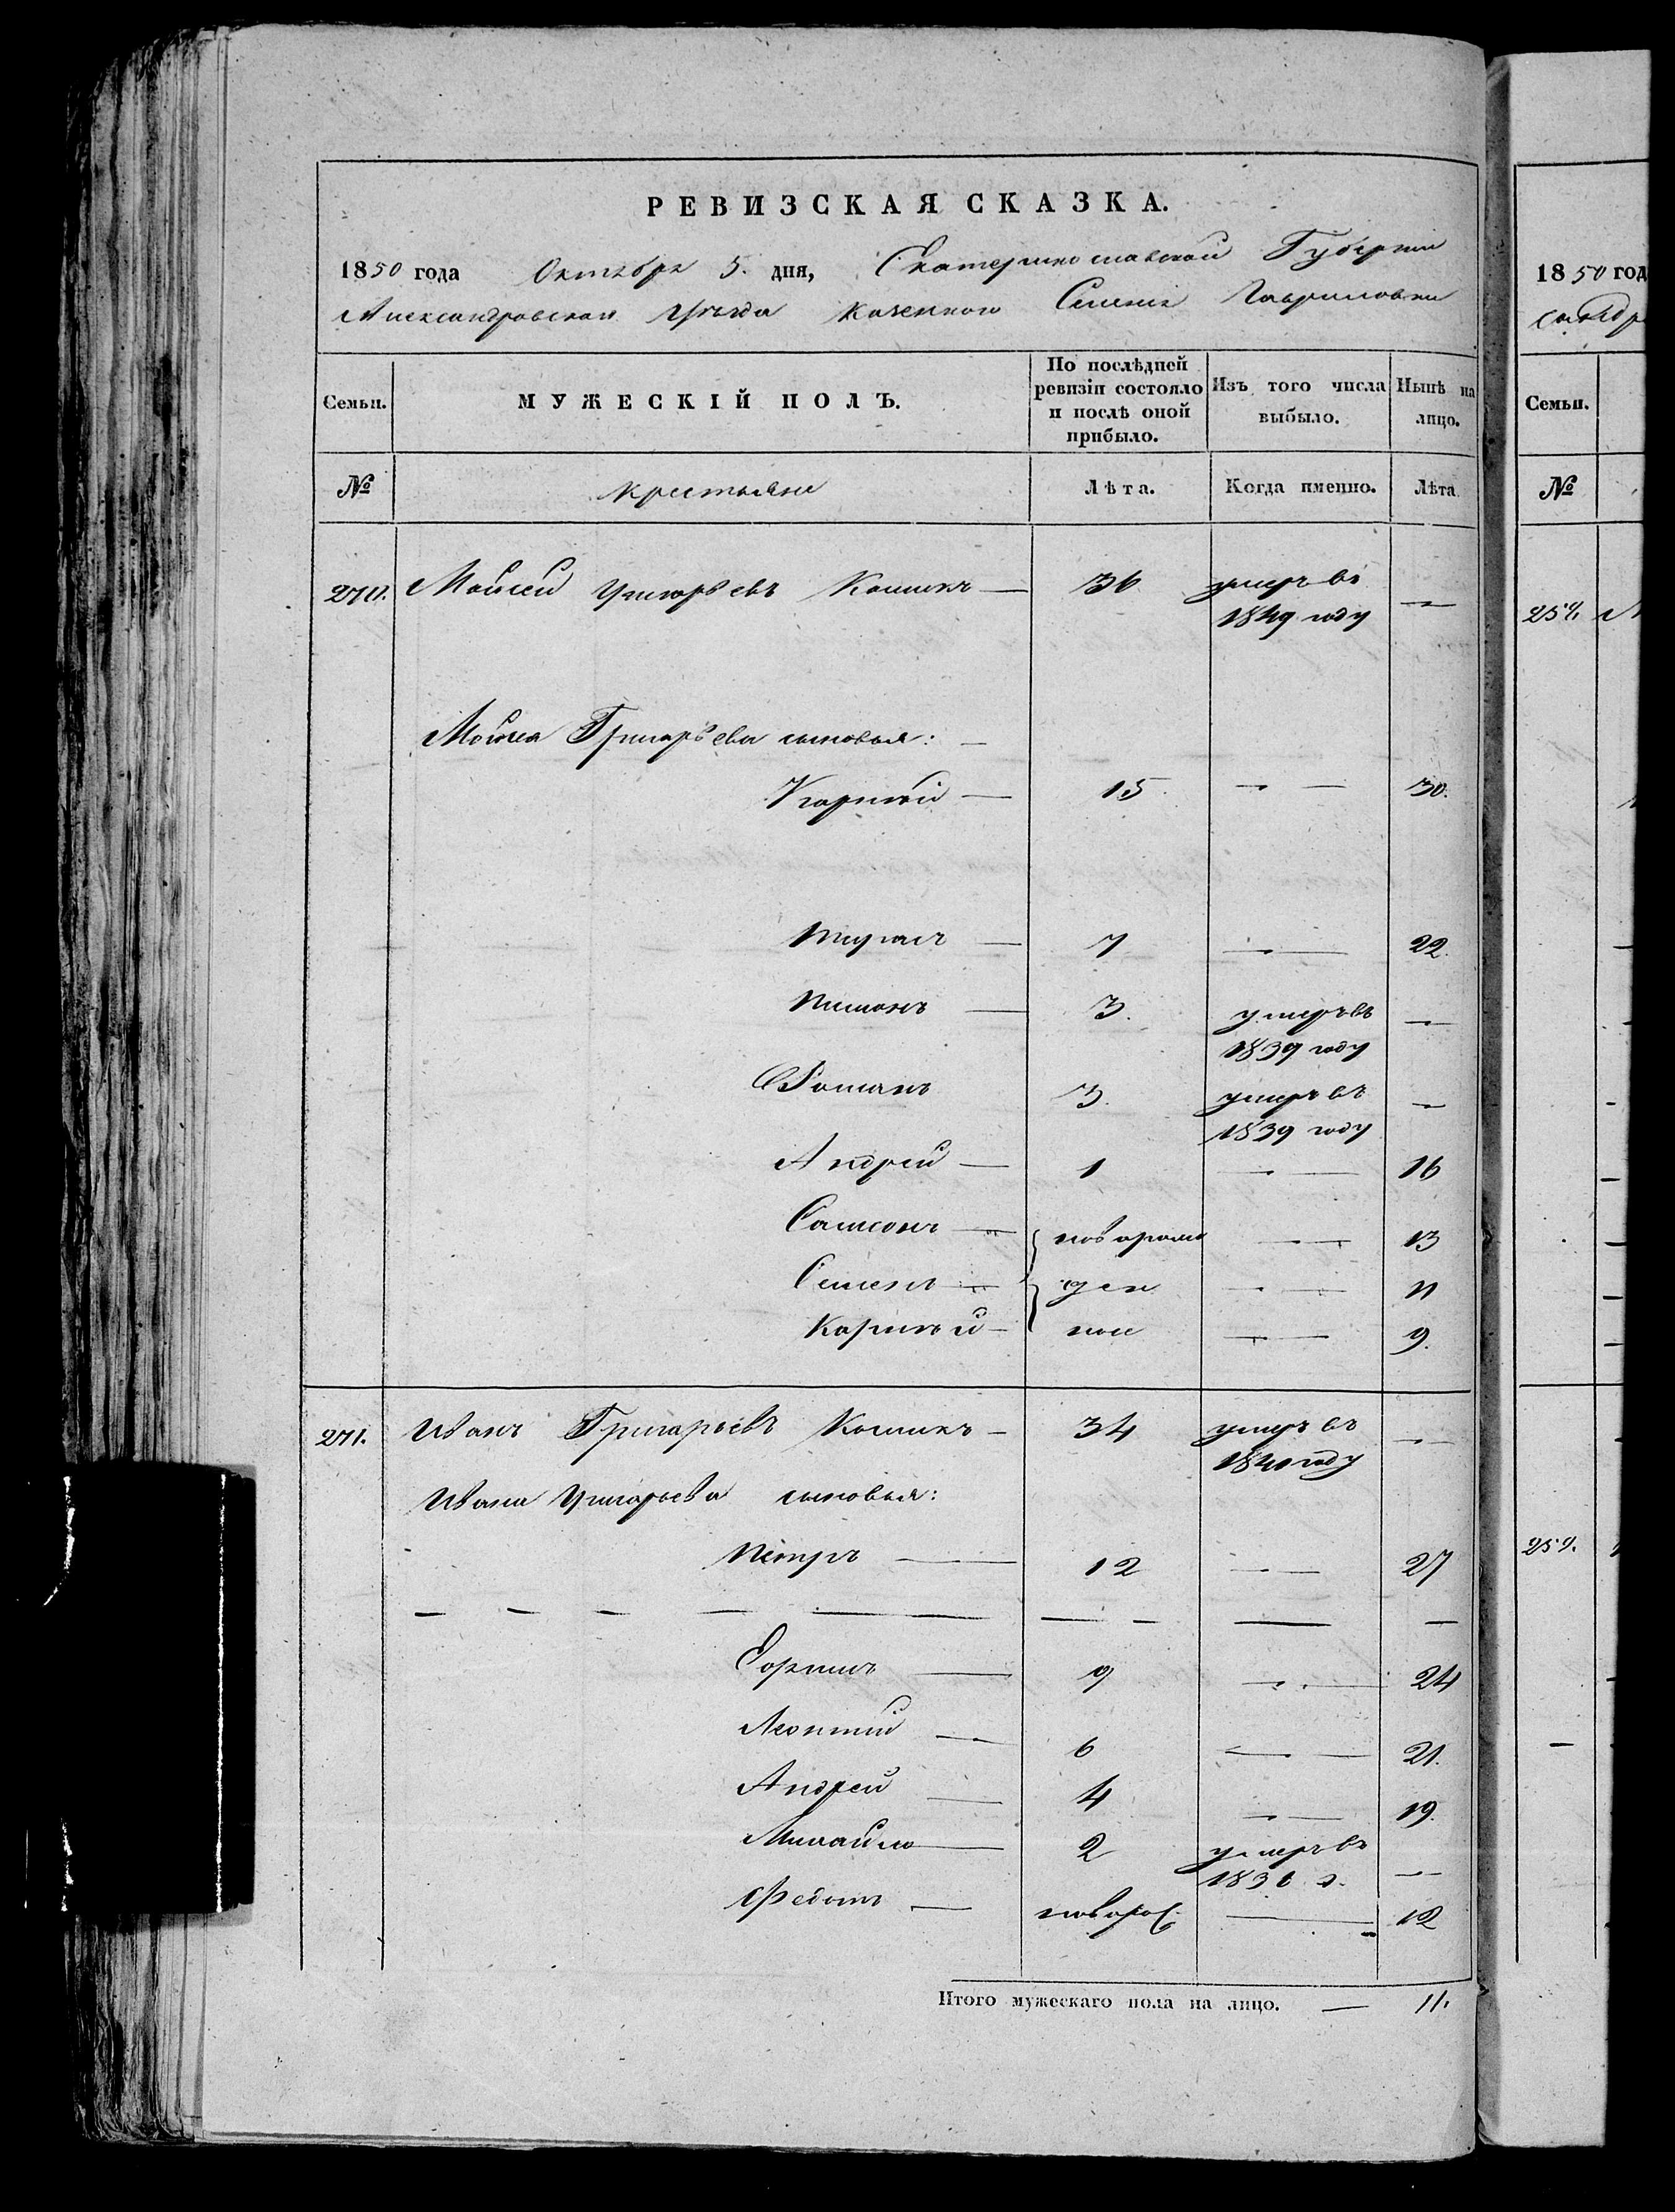 РЕВИЗСКАЯ СКАЗКА.
1850 года Октября 5. дня, Екатеринославской Губернии
Александровскаго Уѣзда Казеннаго Селенія Гавриловки
Семьи.
МУЖЕСКІЙ ПОЛЪ.
По послѣдней ревизіи состояло и послѣ оной прибыло.
Изъ того числа выбыло.
Нынѣ на лицо.
№
Крестьяне
Лѣта.
Когда именно.
Лѣта
270. Моисей Григорьевъ 36 умеръ въ
1849 году
Моисея Григорьева сыновья:
15 30.
7 22.
3. умеръ въ
1839 году
Романъ 3. умеръ въ
1839 году
Андрей 1 16
Самсонъ новорож 13
Семенъ ден 11
ные 9.
271. Иванъ Григорьевъ 34 умеръ въ
1840 году
Ивана Григорьева сыновья:
Петръ 12 27
9 24
Леонтій 6 21.
Андрей 4 19.
Михайло 2 умеръ въ
1836 г.
Федотъ новорож. 12
Итого мужескаго пола на лицо. — 11.
1850 год
Семьи.
№